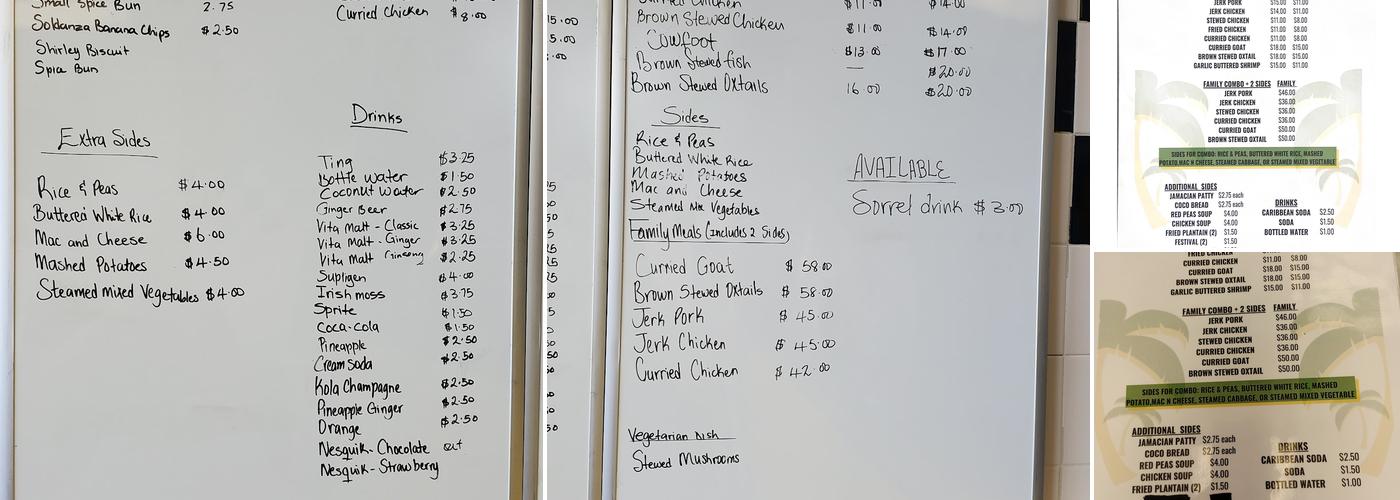 Small Spice Bun 2.75
Soldanza Banana Chips $2.50
Shirley Biscuit
Spice Bun
Curried Chicken $8.00
Extra Sides
Rice & Peas $4.00
Buttered White Rice $4.00
Mac and Cheese $6.00
Mashed Potatoes $4.50
Steamed mixed Vegetables $4.00
Drinks
Ting $3.25
Bottle water $1.50
Coconut Water $2.50
Ginger Beer $2.75
Vita Malt - Classic $3.25
Vita Malt - Ginger $3.25
Vita Malt Ginseng $2.25
Supligen $4.00
Irish moss $3.75
Sprite $1.50
Coca-cola $1.50
Pineapple $2.50
Cream Soda $2.50
Kola Champagne $2.50
Pineapple Ginger $2.50
Orange $2.50
Nesquik - Chocolate out
Nesquik - Strawberry
15.00
5.00
.00
Brown Stewed Chicken $11.00 $14.00
Cowfoot $11.00 $14.00
Brown Stewed fish $13.00 $17.00
— $20.00
Brown Stewed Oxtails 16.00 $20.00
Sides
Rice & Peas
Buttered White Rice
Mashed Potatoes
Mac and Cheese
Steamed Mix Vegetables
Family Meals (Includes 2 Sides)
Curried Goat $58.00
Brown Stewed Oxtails $58.00
Jerk Pork $45.00
Jerk Chicken $45.00
Curried Chicken $42.00
Vegetarian Dish
Stewed Mushrooms
AVAILABLE
Sorrel drink $3.00
JERK PORK $15.00 $11.00
JERK CHICKEN $14.00 $11.00
STEWED CHICKEN $11.00 $8.00
FRIED CHICKEN $11.00 $8.00
CURRIED CHICKEN $11.00 $8.00
CURRIED GOAT $18.00 $15.00
BROWN STEWED OXTAIL $18.00 $15.00
GARLIC BUTTERED SHRIMP $15.00 $11.00
FAMILY COMBO + 2 SIDES FAMILY
JERK PORK $46.00
JERK CHICKEN $36.00
STEWED CHICKEN $36.00
CURRIED CHICKEN $36.00
CURRIED GOAT $50.00
BROWN STEWED OXTAIL $50.00
SIDES FOR COMBO: RICE & PEAS, BUTTERED WHITE RICE, MASHED
POTATOES,MAC N CHEESE, STEAMED CABBAGE, OR STEAMED MIXED VEGETABLE
ADDITIONAL SIDES
JAMACIAN PATTY $2.75 each
COCO BREAD $2.75 each
RED PEAS SOUP $4.00
CHICKEN SOUP $4.00
FRIED PLANTAIN (2) $1.50
FESTIVAL (2) $1.50
DRINKS
CARIBBEAN SODA $2.50
SODA $1.50
BOTTLED WATER $1.00
FRIED CHICKEN
CURRIED CHICKEN $11.00 $8.00
CURRIED GOAT $18.00 $15.00
BROWN STEWED OXTAIL $18.00 $15.00
GARLIC BUTTERED SHRIMP $15.00 $11.00
FAMILY COMBO + 2 SIDES FAMILY
JERK PORK $46.00
JERK CHICKEN $36.00
STEWED CHICKEN $36.00
CURRIED CHICKEN $36.00
CURRIED GOAT $50.00
BROWN STEWED OXTAIL $50.00
SIDES FOR COMBO: RICE & PEAS, BUTTERED WHITE RICE, MASHED
POTATO,MAC N CHEESE, STEAMED CABBAGE, OR STEAMED MIXED VEGETABLE
ADDITIONAL SIDES
JAMACIAN PATTY $2.75 each
COCO BREAD $2.75 each
RED PEAS SOUP $4.00
CHICKEN SOUP $4.00
FRIED PLANTAIN (2) $1.50
DRINKS
CARIBBEAN SODA $2.50
SODA $1.50
BOTTLED WATER $1.00